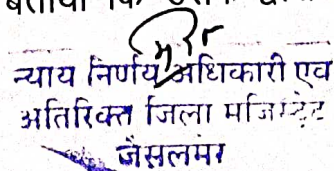 बताया कि
न्याय निर्णय अधिकारी एव
अतिरिक्त जिला मजिस्ट्रेट
जैसलमेर